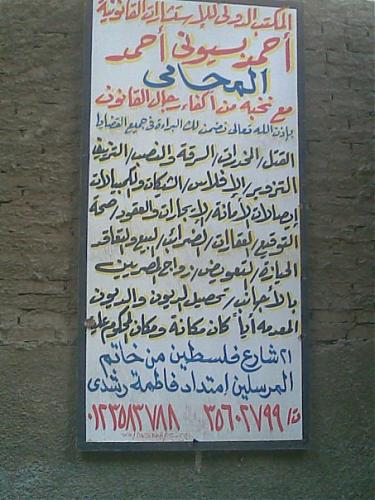 المكتب الدولى للإستشارات القانونية
أحمد بسيونى أحمد
المحامى
مع نخبة من أكفاء رجال القانون
بإذن الله تعالى نضمن لك البراءة فى جميع القضايا
القتل/المخدرات/السرقة والنصب/التزييف
التزوير/الإفلاس/الشيكات والكمبيالات
إيصالات الأمانة/الإيجارات والعقود/صحة
التوقيع/عقارات/الضرائب/البيع والتعاقد
الحيازة/التعويض/زواج المصريين
بالأجانب/تحصيل الديون والديون
المعدومة أياً كان مكانة ومكان المحكوم عليه
٢١ شارع فلسطين من خاتم
المرسلين امتداد فاطمة رشدى
ت/ ٣٥٦٠٢٧٩٩ ٠١٢٣٥٨٣٧٨٨